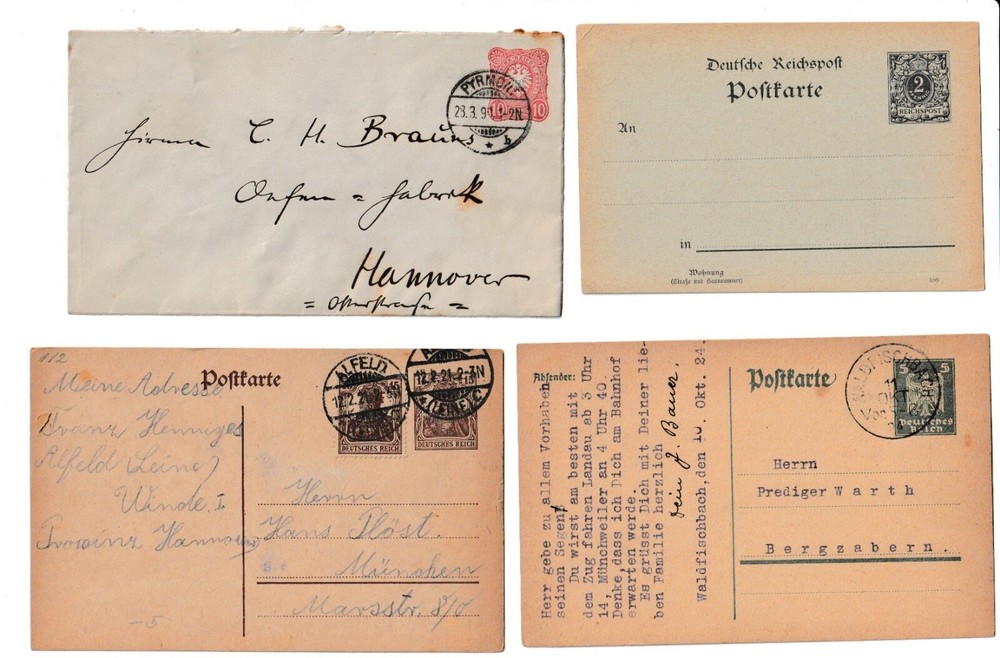 PYRMONT
23.3.99.1-2N
b * b
10 10
Firma C. H. Brauns
Oefen = fabrik
Hannover
= Osterstraße =
Deutsche Reichspost
Postkarte
2
REICHSPOST
An
in
Wohnung
(Straße und Hausnummer)
112
Meine Adresse
Franz Henniges
Alfeld (Leine)
Winde. I
Provinz Hannover
-5
Postkarte
ALFELD
12.2.21.2-3N
*(LEINE)*
15
DEUTSCHES REICH
DEUTSCHES REICH
Herrn
Hans Plöst.
München
Marsstr. 8/0
Herr gebe zu allem Vorhaben
seinen Segen!
Du wirst am besten mit
dem Zug fahren Landau ab 3 Uhr
14, Münchweiler an 4 Uhr 40.
Denke, dass ich Dich am Bahnhof
erwarten werde.
Es grüsst Dich mit Deiner lie-
ben Familie herzlich
dein J. Bauer.
Waldfischbach, den 10. Okt. 24.
Absender:
Postkarte
WALDFISCHBACH
11
OKT
5 5
Deutsches
Reich
Herrn
Prediger Warth
Bergzabern.